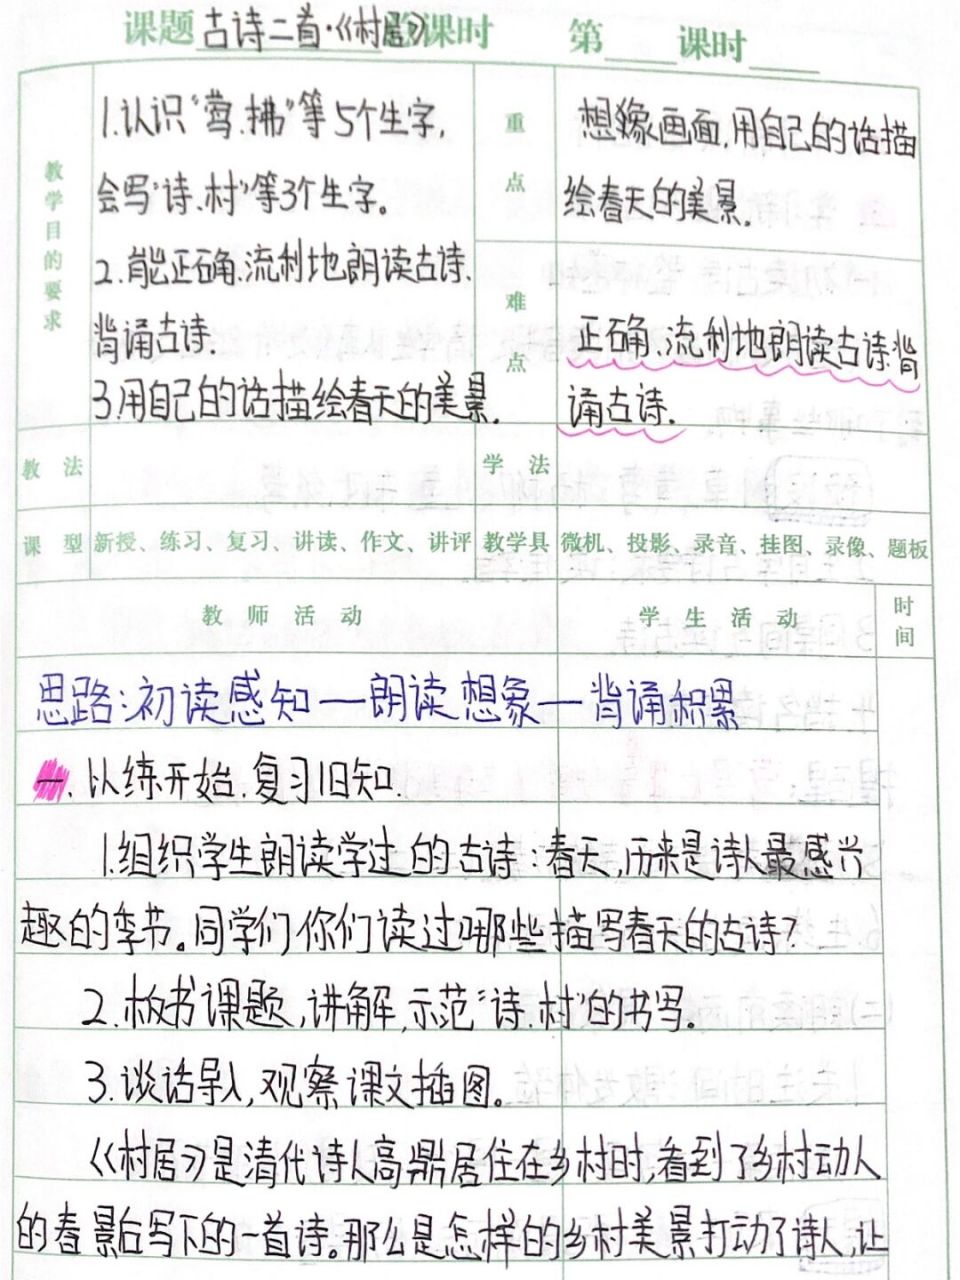 课题 古诗二首·《村居》 课时 第 课时
教学目的要求
1.认识“莺.拂”等5个生字,
会写“诗.村”等3个生字。
2.能正确.流利地朗读古诗.
背诵古诗.
3.用自己的话描绘春天的美景.
重点
想像画面,用自己的话描
绘春天的美景。
难点
正确.流利地朗读古诗.背
诵古诗.
教法
学法
课型 新授、练习、复习、讲读、作文、讲评 教学具 微机、投影、录音、挂图、录像、题板
教师活动 学生活动 时间
思路:初读感知—朗读想象—背诵积累
一.以练开始.复习旧知.
1.组织学生朗读学过的古诗.春天,历来是诗人最感兴
趣的季节。同学们你们读过哪些描写春天的古诗?
2.板书课题,讲解,示范“诗.村”的书写。
3.谈话导入,观察课文插图。
《村居》是清代诗人高鼎居住在乡村时,看到了乡村动人
的春景后写下的一首诗。那么是怎样的乡村美景打动了诗人,让